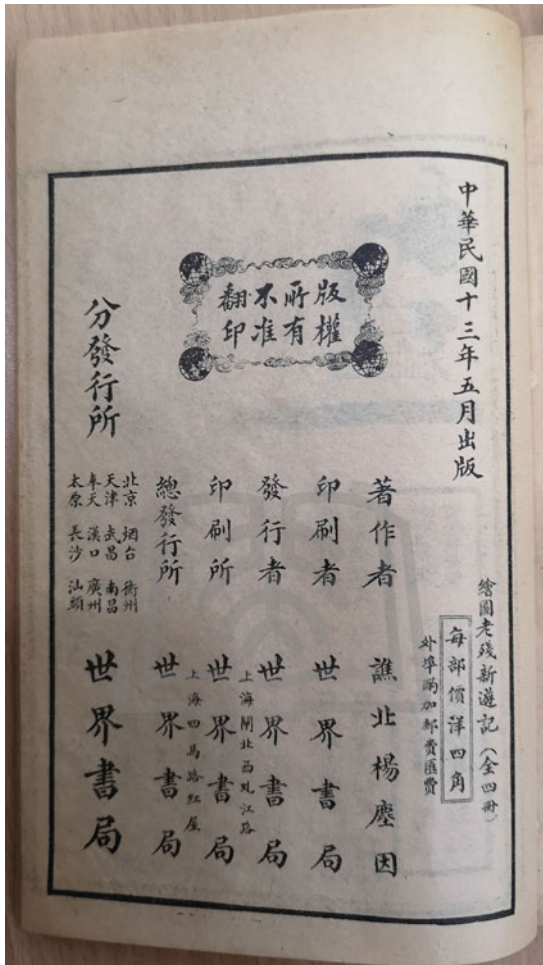 中華民國十三年五月出版
繪圖老殘新遊記（全四冊）
每部價洋四角
外埠酌加郵費匯費
版權
所有
不准
翻印
著作者 譙北楊塵因
印刷者 世界書局
發行者 世界書局
上海閘北西虬江路
印刷所 世界書局
上海四馬路紅屋
總發行所 世界書局
分發行所
北京 烟台 衢州
天津 武昌 南昌
奉天 漢口 廣州
太原 長沙 汕頭
世界書局